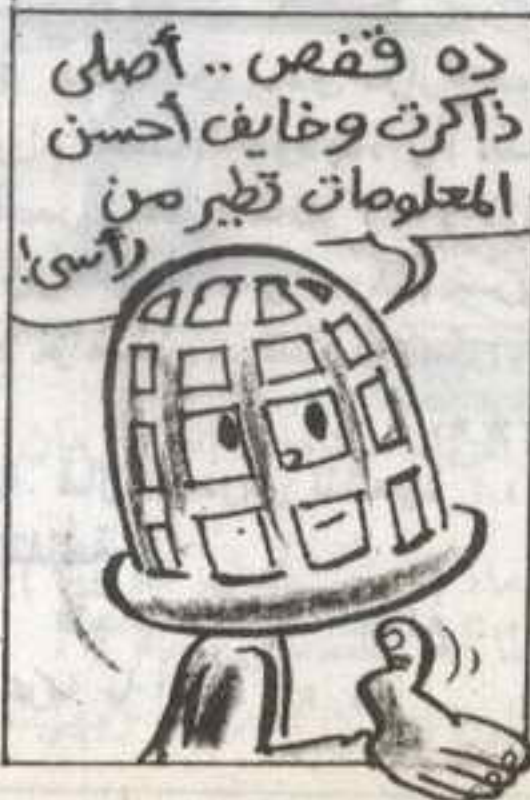 ده قفص .. أصلى
ذاكرت وخايف أحسن
المعلومات تطير من
رأسى!